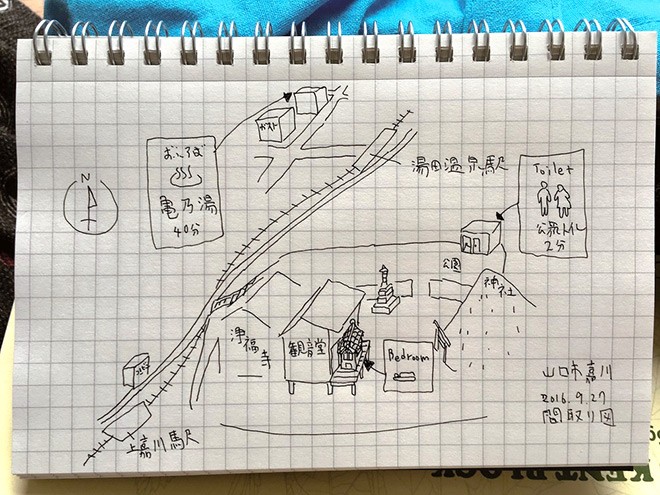 N
おふろば
亀乃湯
40分
ガスト
湯田温泉駅
Toilet
公衆トイレ
2分
公園
神社
浄福寺
観音堂
Bedroom
上嘉川駅
山口市嘉川
2016.9.27
間取り図
KENT BLOCK